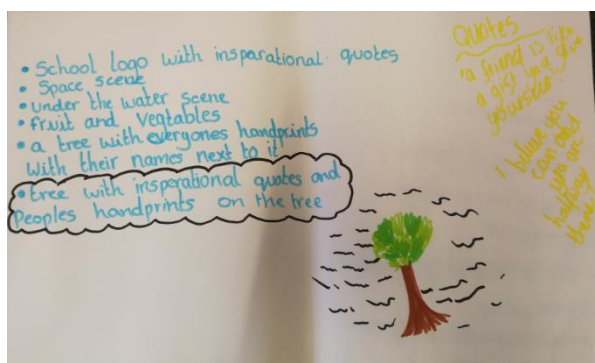 • School logo with insparational quotes
• Space scene
• under the water scene
• fruit and Vegtables
• a tree with everyones handprints
with their names next to it
• tree with insperational quotes and
Peoples handprints on the tree
Quotes
'a friend is like
a gift you give
yourself'
'believe you
can and
you are
halfway
there'